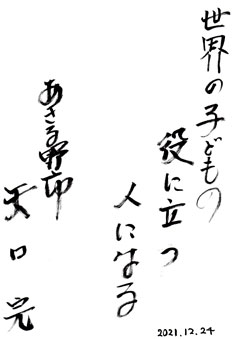 世界の子どもの
役に立つ
人になる
あきる野市
矢口 完
2021.12.24